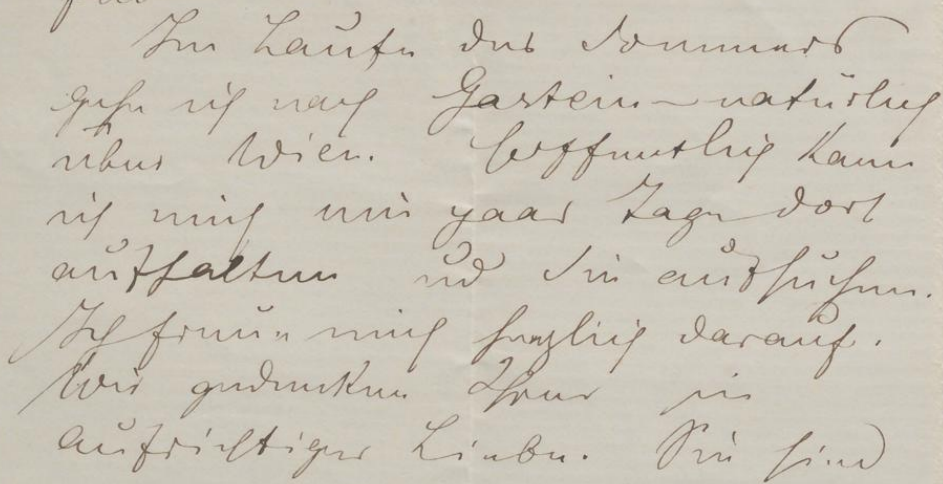 Im Laufe des Sommers
gehe ich nach Gastein – natürlich
über Wien. Hoffentlich kann
ich mich ein paar Tage dort
aufhalten und Sie aufsuchen.
Ich freue mich herzlich darauf.
Wir gedenken Ihrer in
aufrichtiger Liebe. Sie sind